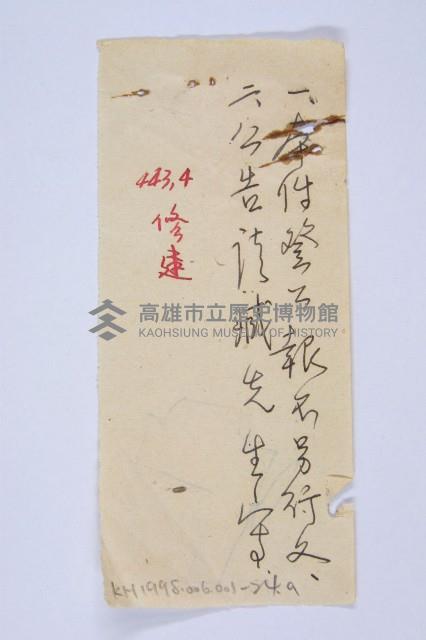 一、本件登公報不另行文、
二、公告請臧先生寫、
443,4
修建
高雄市立歷史博物館
KAOHSIUNG MUSEUM OF HISTORY
KH1998.006.001-24a